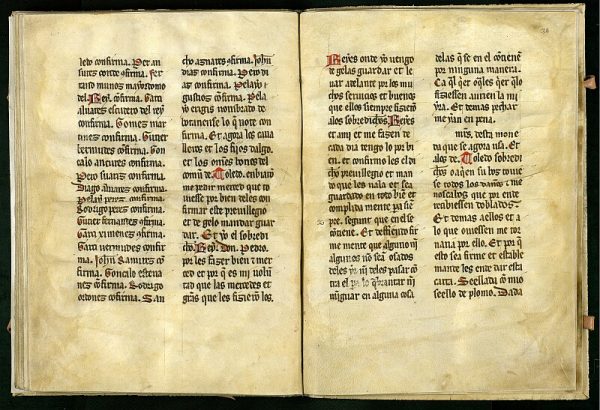 ledo confirma. Per an
sures conde ɔfirma. fer
rand munos mayordomo
del Rey. cõfirma. Gara
aluares escutero del rey
confirma. Gomes mar
tines confirma. Gutier
bermudes cõfirma. Gon
calo ancures confirma.
Pero suares confirma.
Diago aluares cõfirma.
Pelay peres confirma.
Rodrigo peres cõfirma.
Gutier fernandes ɔfirma.
Gara ximenes cõfirma.
Gara uermudes confir
ma. John Ramires cõ
firma. Goncalo esteua
nes cõfirma. Rodrigo
ordones cõfirma. San
cho asnares ɔfirma. John
dias confirma. Pero di
as confirma. Pelayo
gustios cõfirma. Pela
yo erigis nonbrado de
botan
confirma. Et agora los caua
lleros et los fijos dalgo.
et los omes bonos del
comũ de Toledo. enbiarõ
me pedir merced que to
uiesse por bien de les con
firmar este preuillegio
et de gelo mandar guar
dar. Et yo el sobredi
cho Rey. Don. Pedro.
por les fazer bien et mer
ced et por q̃ es mi uolũ
tad que las mercedes et
gr̃as que les fizierõ los.
Reyes onde yo vengo
de gelas guardar et le
uar adelante por los mu
chos seruicios et buenos
que ellos siempre fizierõ
alos sobredichos. Reyes
et amj et me fazen de
cada dia tengo lo por bi
en. et confirmo les el di
cho preuillegio et man
do que les uala et sea
guardado en todo biẽ et
complida mente pa siẽ
pre. segunt que en el se
cõtiene. Et defiendo fir
me mente que alguno nj̃
algunos non seã osados
de les yr nj̃ de les pasar cõ
tra el pa lo q̃brantar nj̃
mj̃guar en alguna cosa
delas q̃ se en el cõtienẽ
por ninguna manera.
Ca q̃l q̃er o q̃les q̃er q̃lo
fiziessen aurien la mi
yra. Et demas pechar
me yan en pena.
mrs. desta mone
da que se agora usa. Et
alos de. Toledo sobredi
chos o a q̃en su bos touie
se todos los danos et me
noscabos que por ende
reẽbiessen doblados.
Et demas a ellos et a
lo que ouiessen me tor
naria por ello. Et por q̃
esto sea firme et estable
mande les ende dar esta
carta. Seellada cõ mio
seello de plomo. Dada